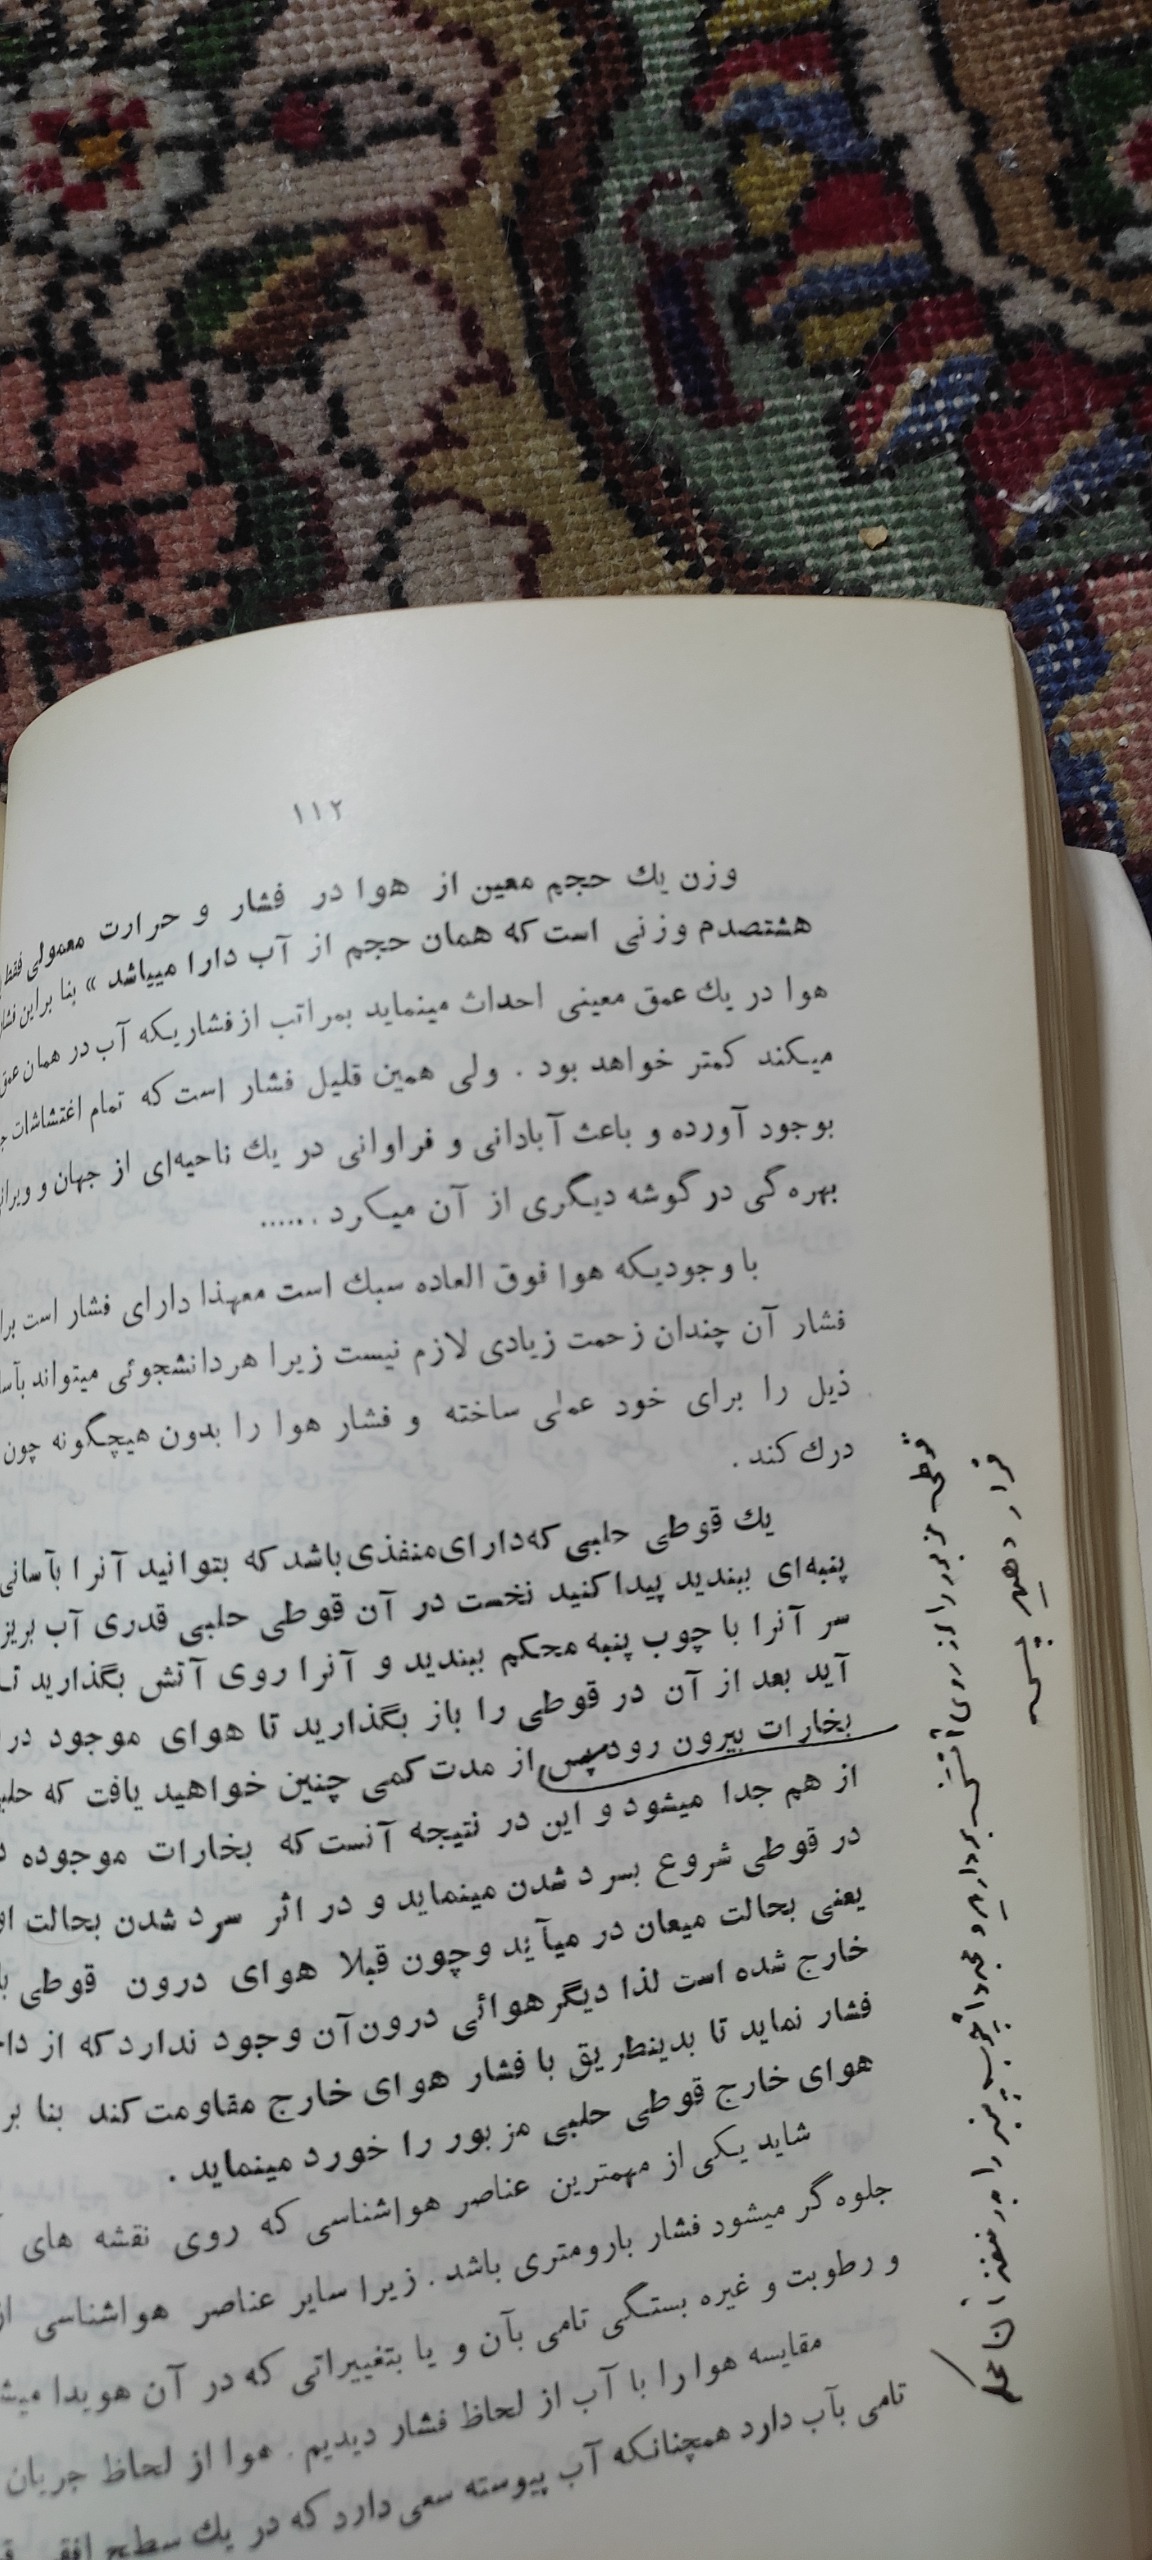 ۱۱۲
وزن یك حجم معین از هوا در فشار و حرارت معمولی فقط
هشتصدم وزنی است که همان حجم از آب دارا میباشد » بنا براین فشار
هوا در یك عمق معینی احداث مینماید بمراتب از فشاریکه آب در همان عمق
میکند کمتر خواهد بود . ولی همین قلیل فشار است که تمام اغتشاشات
بوجود آورده و باعث آبادانی و فراوانی در یك ناحیه‌ای از جهان و
بهره گی در گوشه دیگری از آن میکرد ......
با وجودیکه هوا فوق العاده سبك است معهذا دارای فشار است
فشار آن چندان زحمت زیادی لازم نیست زیرا هر دانشجوئی میتواند
ذیل را برای خود عملی ساخته و فشار هوا را بدون هیچگونه چون
درك کند .
یك قوطی حلبی که دارای منفذی باشد که بتوانید آنرا بآسانی
پنبه‌ای ببندید پیدا کنید نخست در آن قوطی حلبی قدری آب
سر آنرا با چوب پنبه محکم ببندید و آنرا روی آتش بگذارید
آید بعد از آن در قوطی را باز بگذارید تا هوای موجود در
بخارات بیرون رود پس از مدت کمی چنین خواهید یافت که
از هم جدا میشود و این در نتیجه آنست که بخارات موجوده
در قوطی شروع بسرد شدن مینماید و در اثر سرد شدن بحالت
یعنی بحالت میعان در میآید و چون قبلا هوای درون قوطی
خارج شده است لذا دیگر هوائی درون آن وجود ندارد که از
فشار نماید تا بدینطریق با فشار هوای خارج مقاومت کند بنا بر
هوای خارج قوطی حلبی مزبور را خورد مینماید .
شاید یکی از مهمترین عناصر هواشناسی که روی نقشه های
جلوه گر میشود فشار بارومتری باشد . زیرا سایر عناصر هواشناسی
و رطوبت و غیره بستگی تامی بآن و یا بتغییراتی که در آن هویدا
مقایسه هوا را با آب از لحاظ فشار دیدیم . هوا از لحاظ جریان
تامی بآب دارد همچنانکه آب پیوسته سعی دارد که در یك سطح افقی
قوطی مزبور را از روی آتش برداریم و مجدداً چوب پنبه را در منفذ آن محکم
قرار دهیم